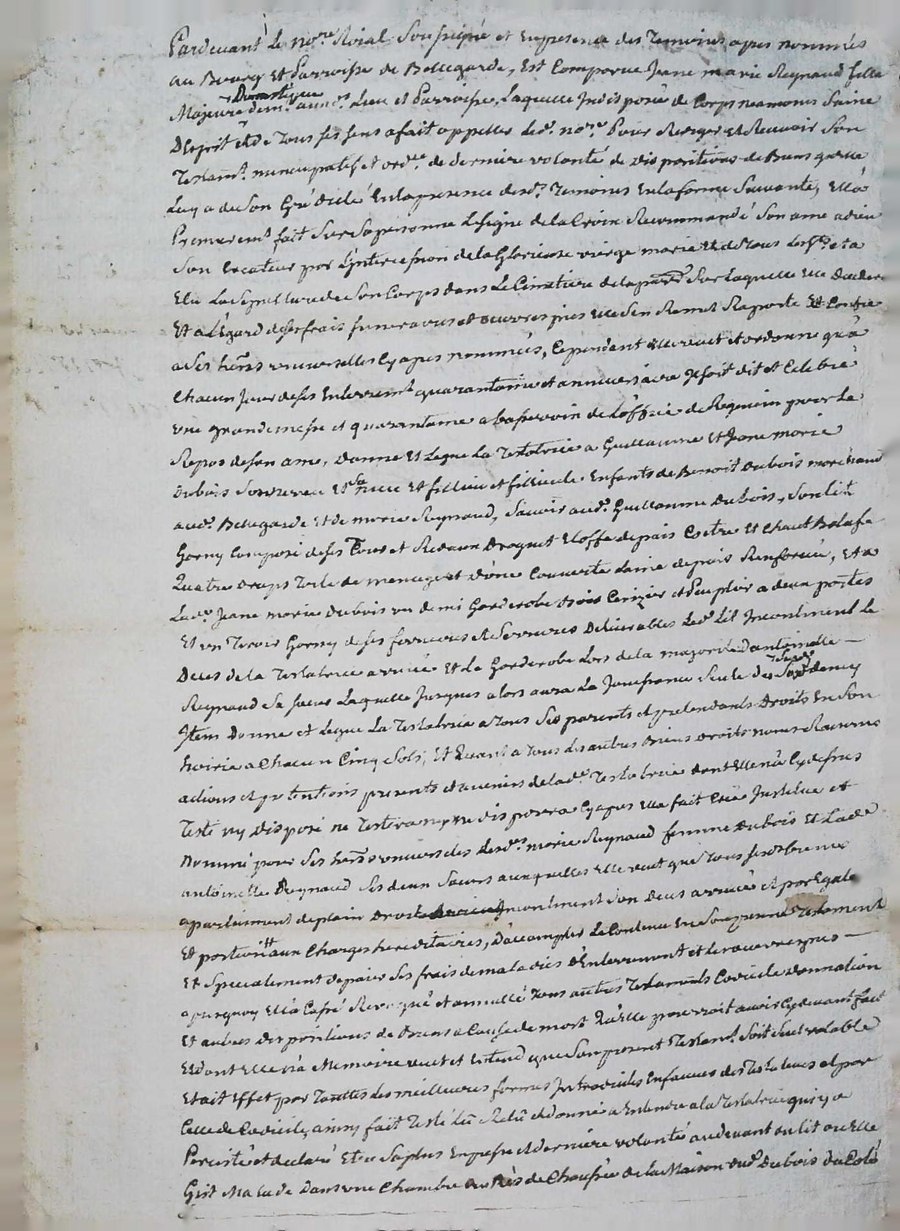 Pardevant Le no.re Roial Soussigné et En presence des Temoins apres nommés
au Bourg Et Parroisse de Bellegarde, Est Comparue Jeane marie Reynaud fille
Majeure Domestique dem.t aud.t Lieu et Parroisse, Laquelle Indisposée de Corps neamoins Saine
D'Esprit Et de Tous ses sens a fait appeller led.t no.re Pour Rediger et Recevoir Son
Testam.t nuncupatif et ord.ce de derniere volonté de dispositions de Biens quelle
Luy a de Son Gré dicté En la presence desd.t Temoins En la forme Suivante, Elle a
Premierem.t fait Sur Sa personne Le signe de la Croix Recommandé Son ame a dieu
Son Createur par L'intercession de la Glorieuse vierge marie Et de Tous Les S.ts et a
Elu La Sepulture de Son Corps dans Le Cimetiere de la par.sse Sur Laquelle Elle decedera
Et a L'Egard de ses frais funeraires et oeuvres pies Elle S'en Remet Raporte Et Confie
a Ses her.es universelles Cy apres nommées, Cependant Elle veut et ordonne qu'a
Chacun Jour de ses Enterrem.t quarantaine et anniversaire Il soit dit et Celebré
une grande messe et quarantaine a basse voix de L'office de Requiem pour Le
Repos de son ame, Donne Et Legue La Testatrice a Guillaume Et Jeane marie
Dubois Son neveu Et Sa niece Et filleul et filleule Enfants de Benoit Dubois marchand
aud.t Bellegarde Et de marie Reynaud, Savoir aud.t Guillaume Dubois, Son lit
Garny Composé de ses Tour et Rideaux Droguet Etoffe de pais Coetre Et Chaut Balafe
Quatre Draps Toile de menage et d'une Couverte Laine de pais Renforcée, Et a
Lad.te Jeane marie Dubois un demi Garderobe Bois Cerizier et Peuplier a deux portes
Et un Tiroir Garny de ses ferrures et Serrures Delivrables Led.t Lit Incontinent Le
Deces de la Testatrice arrivée Et Le Garderobe Lors de la majorité D'antoinette
Reynaud Sa Soeur Laquelle Jusques alors aura La Jouissance Seule dud.t demy
Item Donne et Legue La Testatrice a Tous Ses parents et pretendants Droits En Son
hoirie a Chacun Cinq Sols, Et Quant a Tous Ses autres Biens Droits noms Raisons
actions et pretentions presents et avenirs de lad.te Testatrice dont Elle n'a Cy dessus
Testé ny disposé ne Testera ny ne disposera Cy apres Elle a fait Créé Institué et
nommé pour Ses her.es universelles Lesd.tes marie Reynaud femme Dubois Et Lad.te
antoinette Reynaud Ses deux Soeurs auxquelles Elle veut que Tous Sesd.ts biens
apartiennent de plain Droit Incontinent Son Deces arrivée et par Egale
Et portion Et aux Charges hereditaires, D'accomplir Le Contenu En Son present Testament
Et Specialement de paier Ses frais de maladies D'Enterrement et de oeuvres pies
apurquoy Elle a Cassé Revoqué et annullé Tous autres Testaments Codicile donnation
Et autres dispositions de Biens a Cause de mort Qu'Elle pourroit avoir Cy devant fait
Et dont Elle n'a Memoire veut et Entend que Son present Testam.t Soit Seul valable
Et ait Effet par Touttes Les meilleures formes Introduites En faveur des Testateurs et par
Celle de Codicile, ainsy fait Testé Lu Relu Et donné a Entendre a la Testatrice qui y a
Persisté et declaré Etre Sa plus Expresse et derniere volonté au devant du lit ou Elle
Git Malade Dans une Chambre au Rés de Chaussée de La Maison dud.t Dubois du Coté